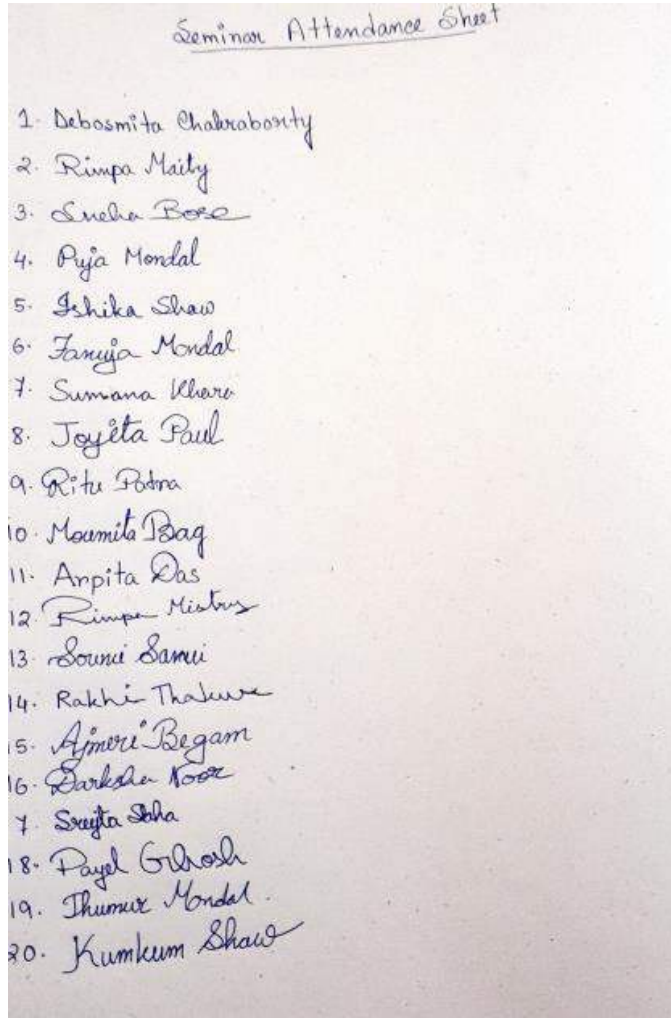 Seminar Attendance Sheet
1. Debosmita Chakraborty
2. Rimpa Maity
3. Sneha Bose
4. Puja Mondal
5. Ishika Shaw
6. Tanuja Mondal
7. Sumana Khara
8. Joyita Paul
9. Ritu Patra
10. Moumita Bag
11. Arpita Das
12. Rimpa Mistry
13. Soumi Samui
14. Rakhi Thakur
15. Ajmeri Begam
16. Darksha Noor
7. Saha
18. Payel Ghosh
19. Jhumur Mondal.
20. Kumkum Shaw